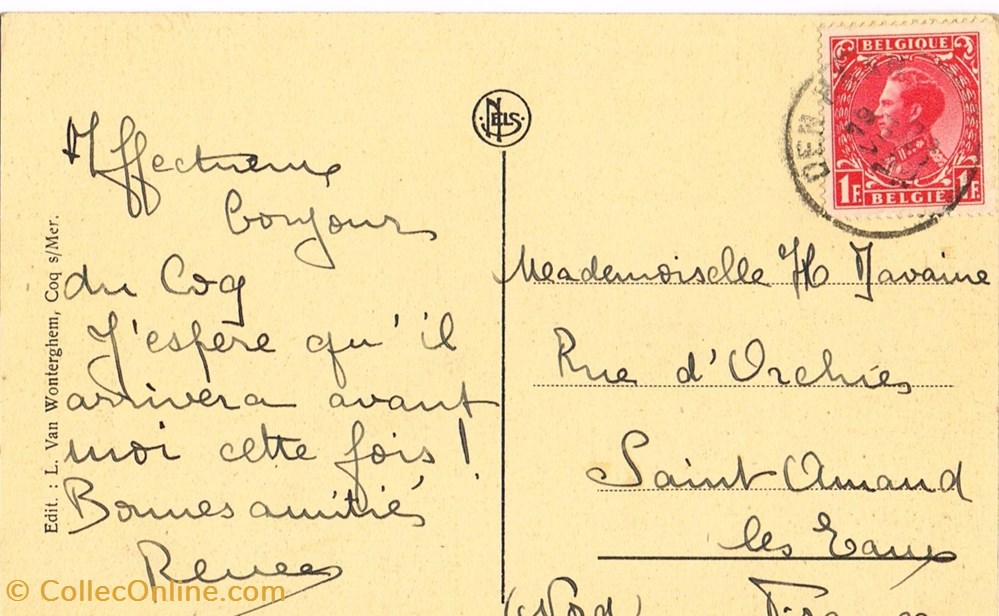 Affectueux
bonjour
du Coq
J'espère qu'il
arrivera avant
moi cette fois !
Bonnes amitiés
Renée
Edit. : L. Van Wonterghem, Coq s/Mer.
NELS
BELGIQUE
1F. 1F.
BELGIË
DEN H
Meademoiselle H Javaine
Rue d'Orchies
Saint Amand
les Eaux
(Nord)
© CollecOnline.com